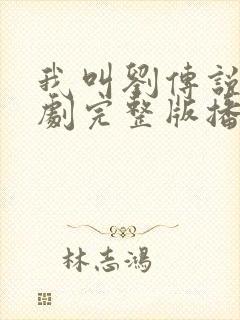 我叫劉傳說
劇完整版播
林志鴻